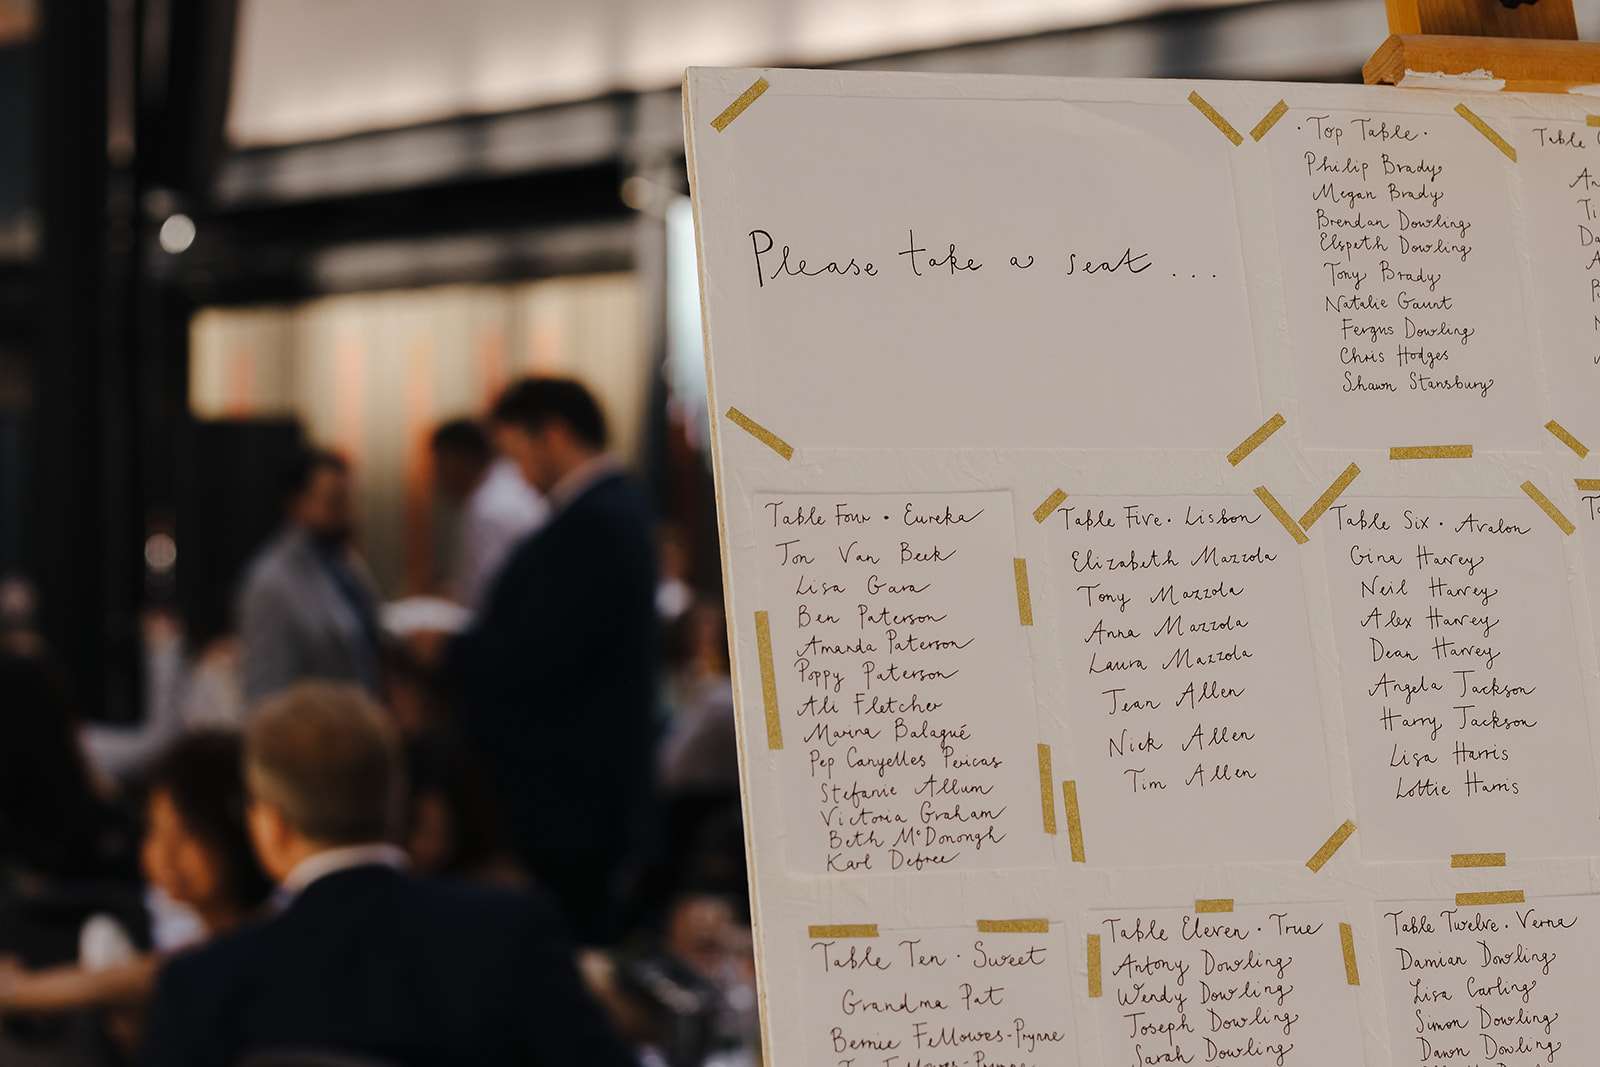 Please take a seat ...
· Top Table ·
Philip Brady
Megan Brady
Brendan Dowling
Elspeth Dowling
Tony Brady
Natalie Gaunt
Fergus Dowling
Chris Hodges
Shawn Stansbury
Table
Table Four · Eureka
Jon Van Beek
Lisa Gara
Ben Paterson
Amanda Paterson
Poppy Paterson
Ali Fletcher
Marina Balagué
Pep Canyelles Pericas
Stefanie Allum
Victoria Graham
Beth McDonough
Karl Defree
Table Five · Lisbon
Elizabeth Mazzola
Tony Mazzola
Anna Mazzola
Laura Mazzola
Jean Allen
Nick Allen
Tim Allen
Table Six · Avalon
Gina Harvey
Neil Harvey
Alex Harvey
Dean Harvey
Angela Jackson
Harry Jackson
Lisa Harris
Lottie Harris
Table Ten · Sweet
Grandma Pat
Bernie Fellowes-Prynne
Fellowes-Prynne
Table Eleven · True
Antony Dowling
Wendy Dowling
Joseph Dowling
Sarah Dowling
Table Twelve · Verna
Damian Dowling
Lisa Carling
Simon Dowling
Dawn Dowling